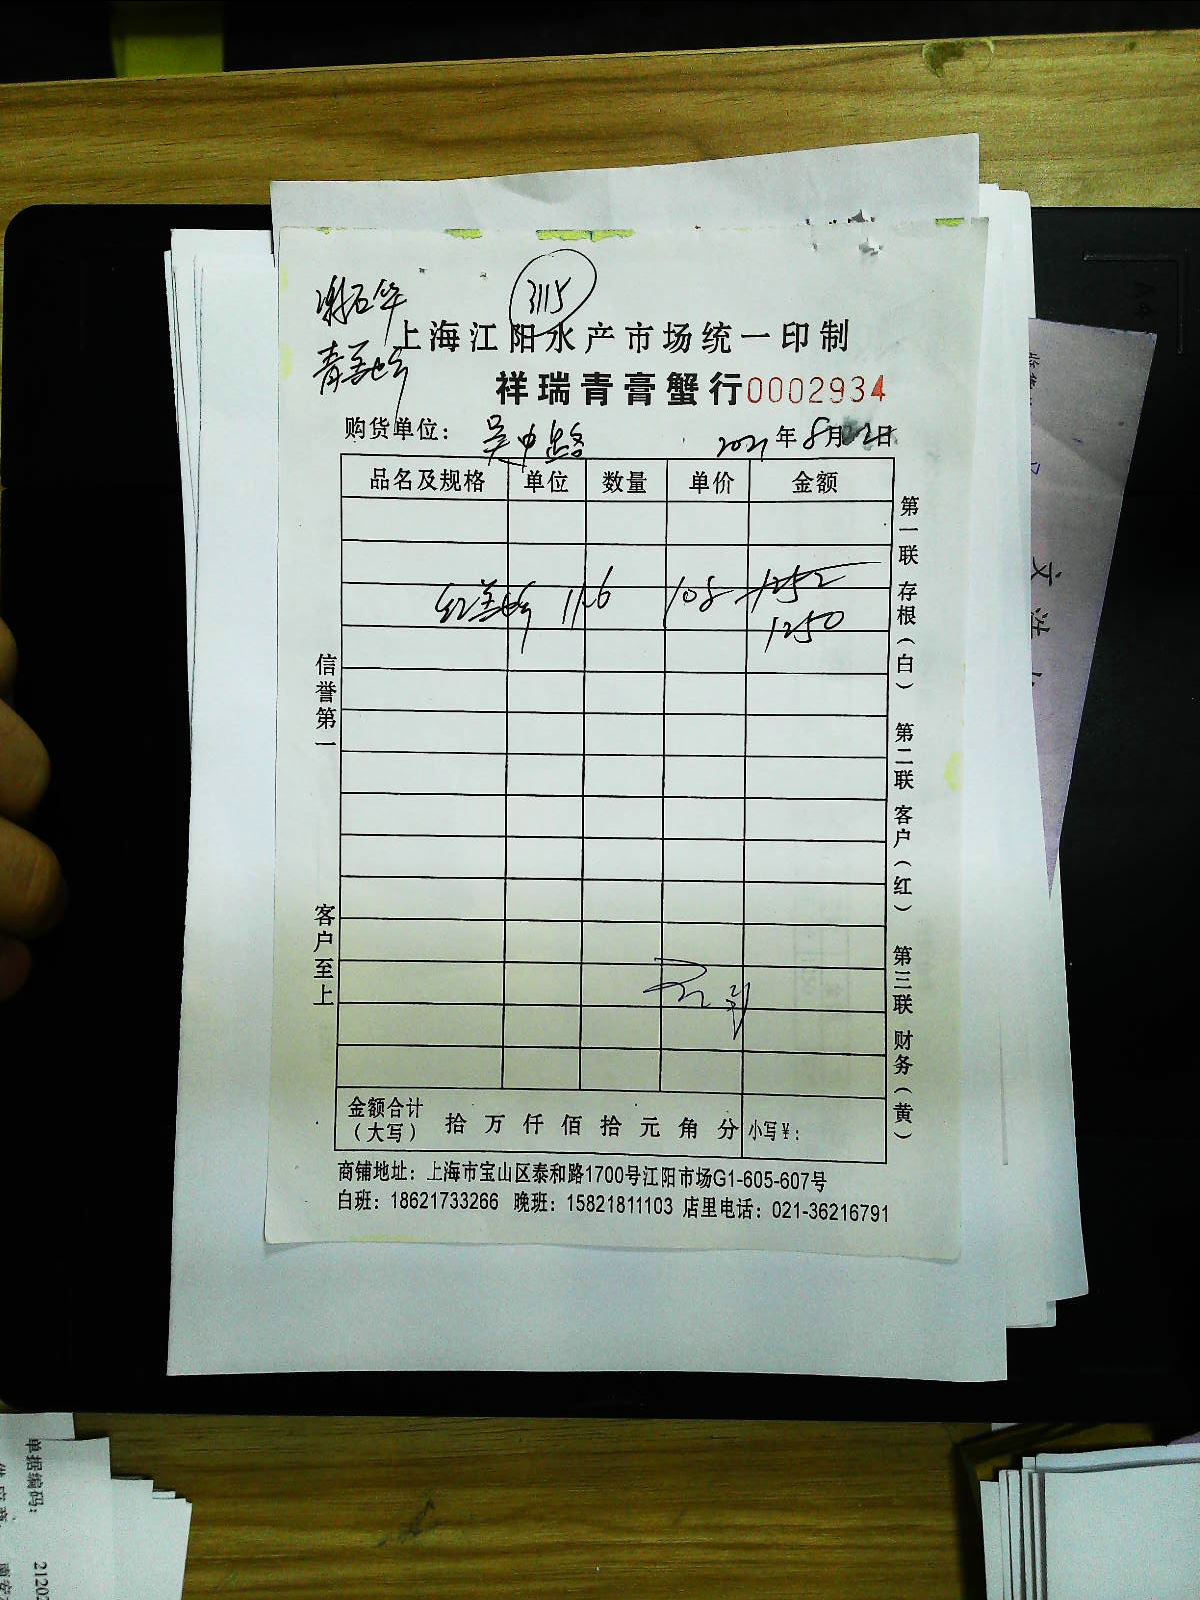 3115
谢石华
上海江阳水产市场统一印制
青羔蟹
祥瑞青膏蟹行0002934
购货单位： 吴中路 2021年8月 日
品名及规格 单位 数量 单价 金额
红羔蟹 11.6 108 1252
1250
信誉第一
客户至上
第一联 存根（白） 第二联 客户（红） 第三联 财务（黄）
金额合计（大写） 拾 万 仟 佰 拾 元 角 分 小写￥：
商铺地址：上海市宝山区泰和路1700号江阳市场G1-605-607号
白班：18621733266 晚班：15821811103 店里电话：021-36216791
单据编码：
2120